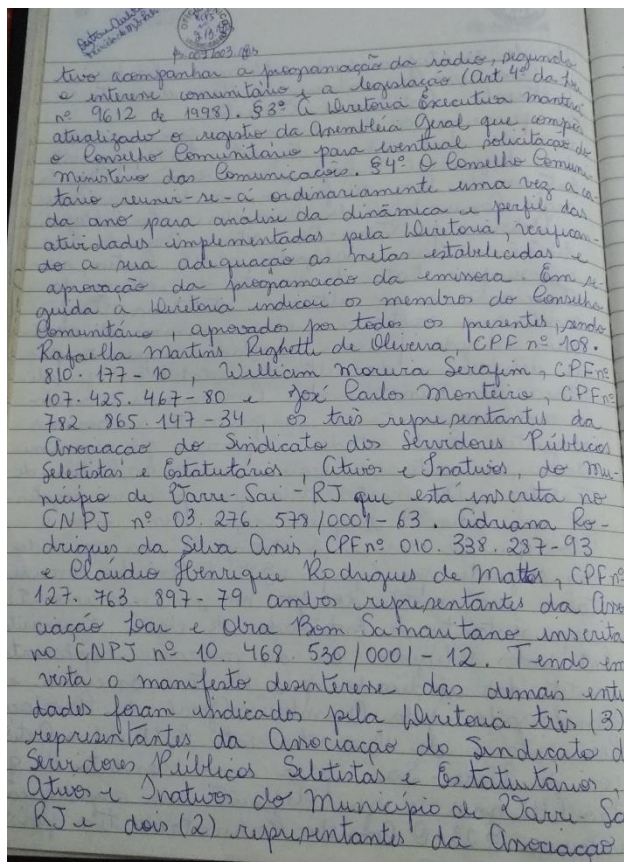 tivo acompanhar a programação da rádio, segundo
o interesse comunitário e a legislação (Art. 4º da Lei
nº 9612 de 1998). §3º A Diretoria Executiva manterá
atualizado o registro da Assembleia Geral que compõe
o Conselho Comunitário para eventual solicitação do
Ministério das Comunicações. §4º O Conselho Comuni
tário reunir-se-á ordinariamente uma vez a ca
da ano para análise da dinâmica e perfil das
atividades implementadas pela Diretoria, verifican-
do a sua adequação as metas estabelecidas e
aprovação da programação da emissora. Em se-
guida a Diretoria indicou os membros do Conselho
Comunitário, aprovados por todos os presentes, sendo
Rafaella Martins Righetti de Oliveira, CPF nº 108.
810.177-10, William Moreira Serafim, CPF nº
107.425.467-80 e José Carlos Monteiro, CPF nº
782.865.147-34, os três representantes da
Associação do Sindicato dos Servidores Públicos
Seletistas e Estatutários, Ativos e Inativos, do Mu-
nicípio de Varre-Sai - RJ que está inscrita no
CNPJ nº 03.276.578/0001-63. Adriana Ro-
drigues da Silva Anis, CPF nº 010.338.287-93
e Cláudio Henrique Rodrigues de Mattos, CPF nº
127.763.897-79 ambos representantes da Asso
ciação Lar e Obra Bom Samaritano inscrita
no CNPJ nº 10.468.530/0001-12. Tendo em
vista o manifesto desinteresse das demais enti
dades foram indicados pela Diretoria três (3)
representantes da Associação do Sindicato d
Servidores Públicos Seletistas e Estatutários,
Ativos e Inativos do Município de Varre Sa
RJ e dois (2) representantes da Associação